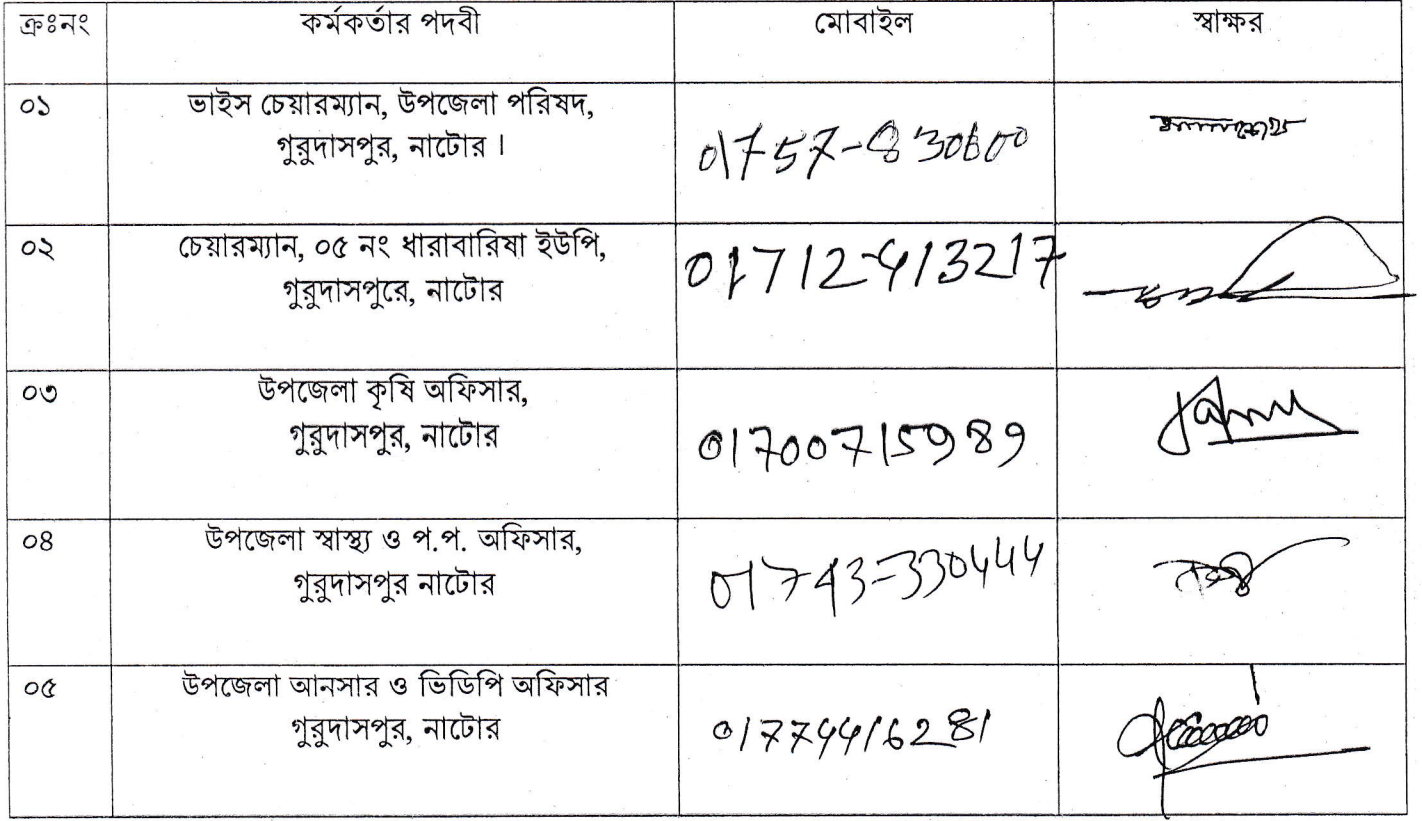 ক্রঃনং কর্মকর্তার পদবী মোবাইল স্বাক্ষর
০১ ভাইস চেয়ারম্যান, উপজেলা পরিষদ,
গুরুদাসপুর, নাটোর ।
০২ চেয়ারম্যান, ০৫ নং ধারাবারিষা ইউপি, 01712-413217
গুরুদাসপুরে, নাটোর
০৩ উপজেলা কৃষি অফিসার,
গুরুদাসপুর, নাটোর 01700715989
০৪ উপজেলা স্বাস্থ্য ও প.প. অফিসার,
গুরুদাসপুর নাটোর 01743-330444
০৫ উপজেলা আনসার ও ভিডিপি অফিসার
গুরুদাসপুর, নাটোর 01774416281